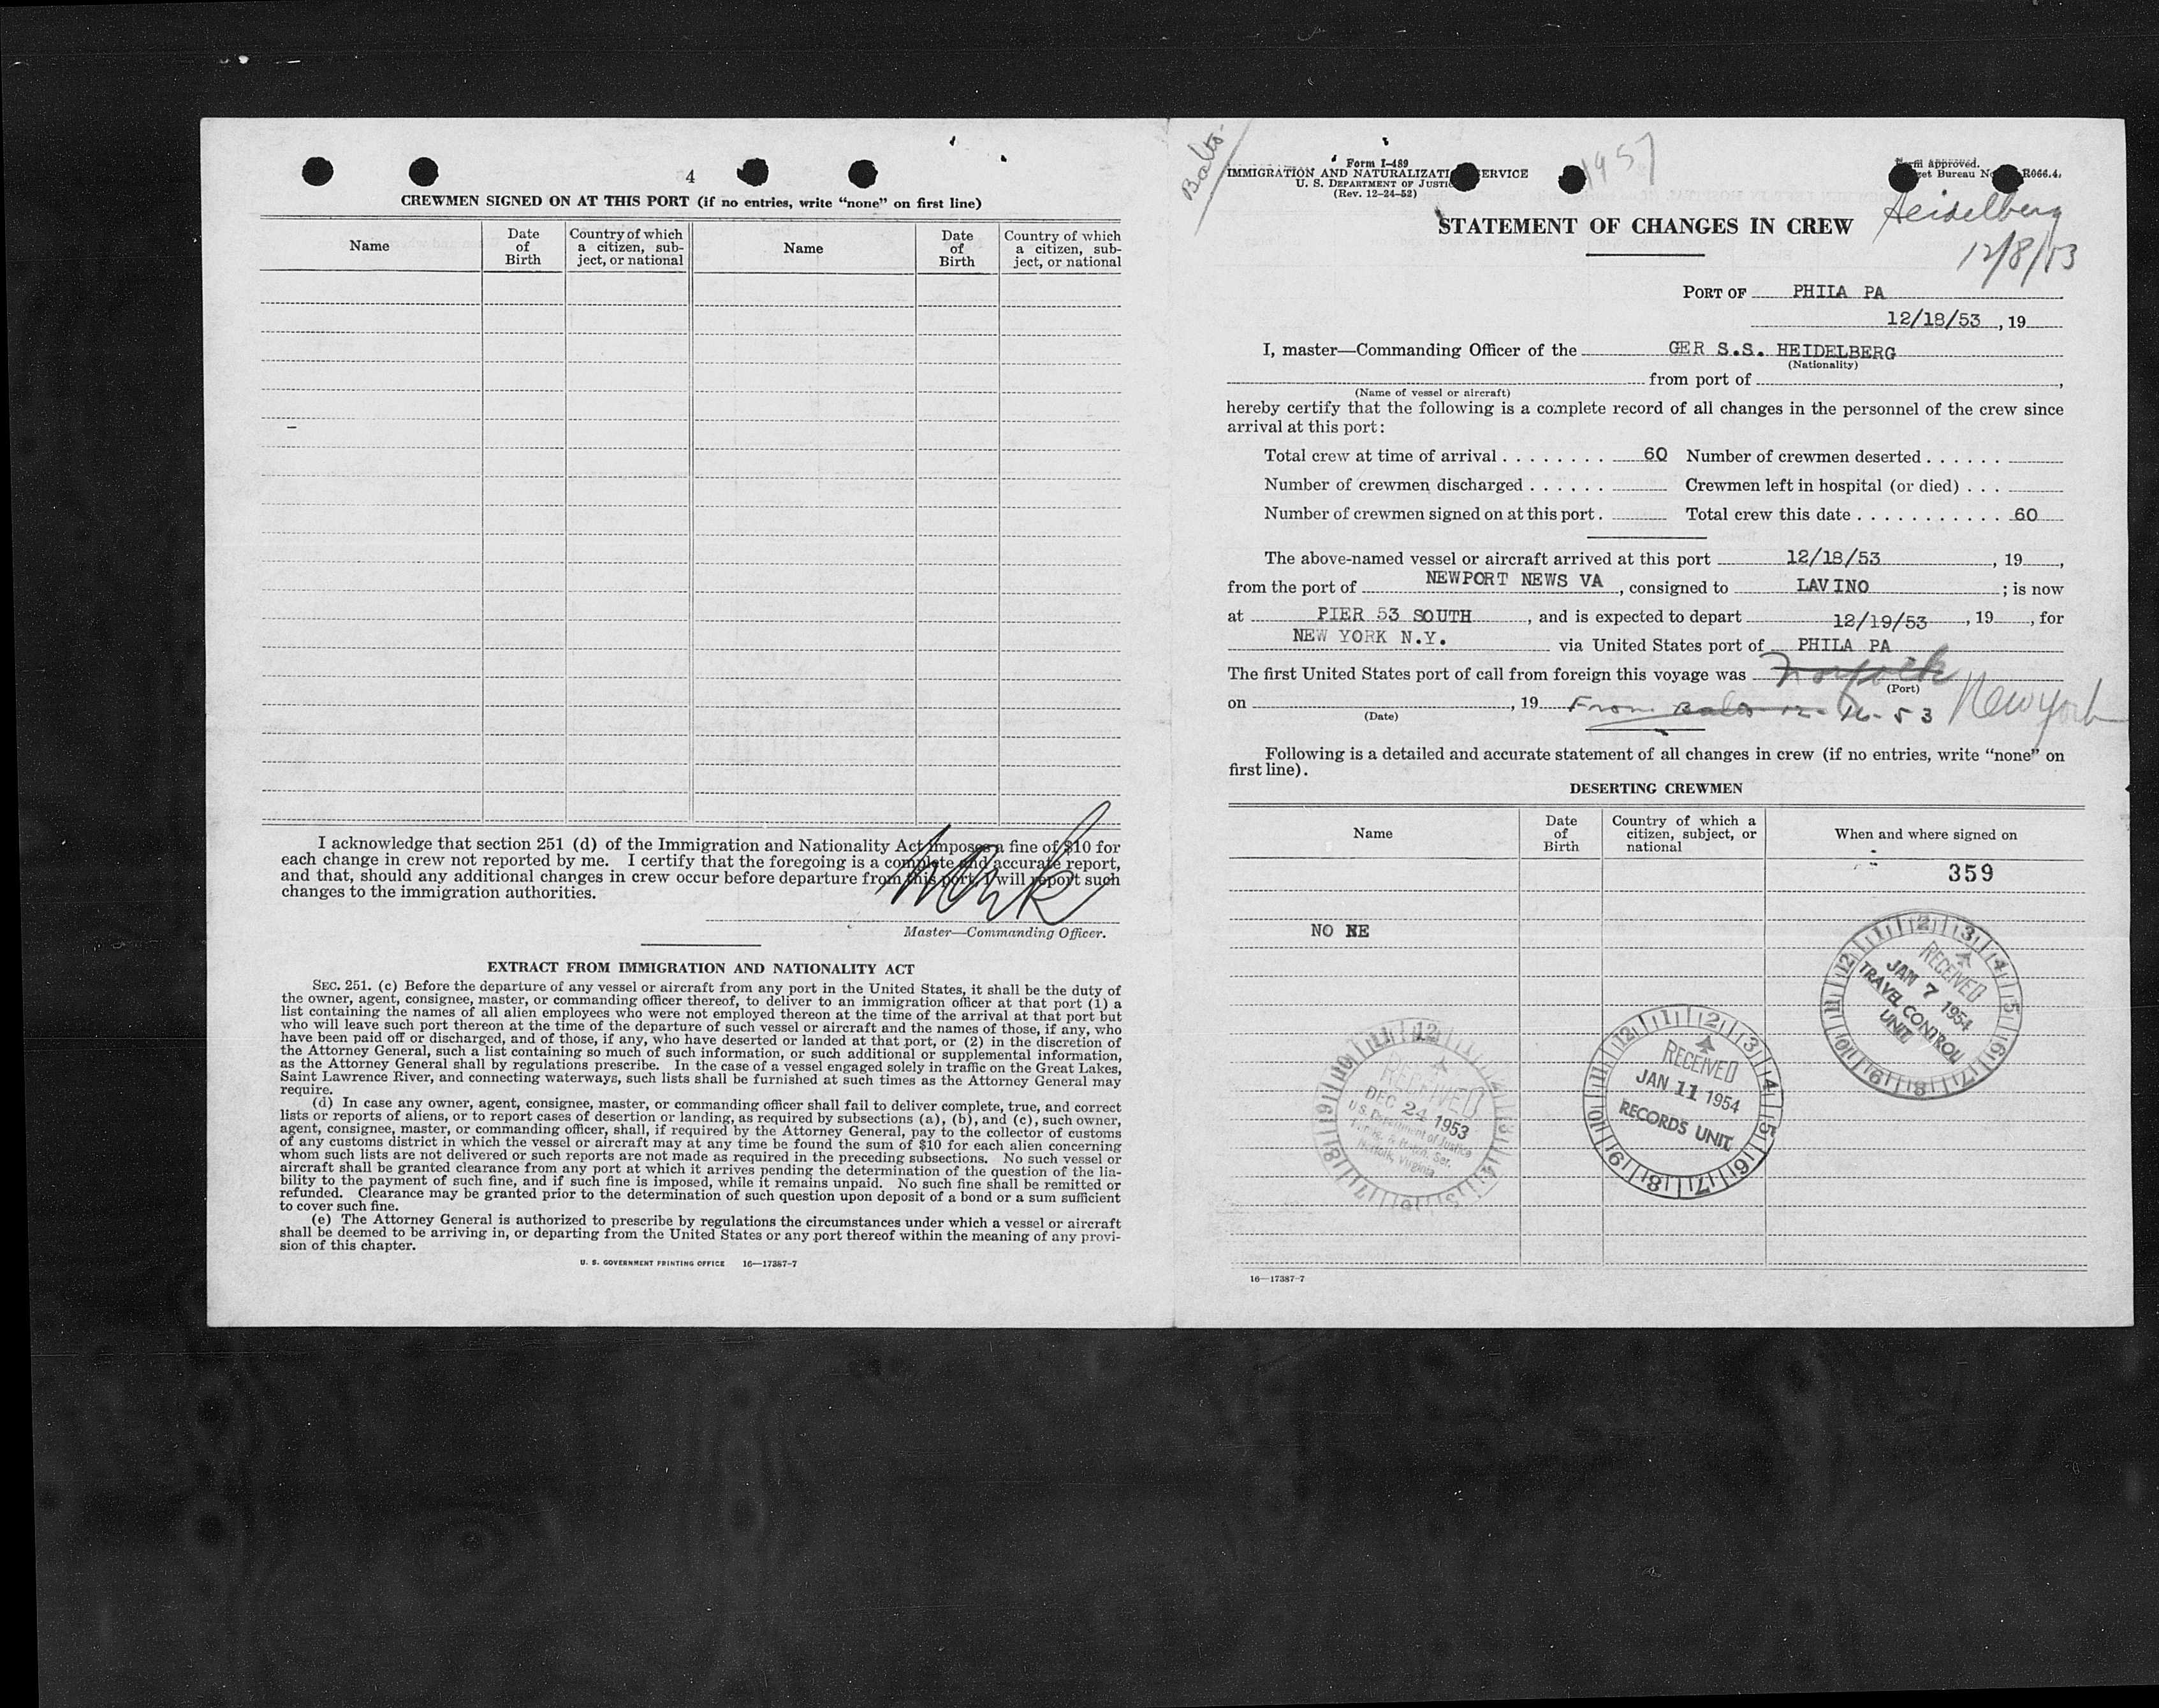 4
CREWMEN SIGNED ON AT THIS PORT (if no entries, write “none” on first line)
Name
Date of Birth
Country of which a citizen, subject, or national
Name
Date of Birth
Country of which a citizen, subject, or national
I acknowledge that section 251 (d) of the Immigration and Nationality Act imposes a fine of $10 for
each change in crew not reported by me. I certify that the foregoing is a complete and accurate report,
and that, should any additional changes in crew occur before departure from this port, I will report such
changes to the immigration authorities.
Master—Commanding Officer.
EXTRACT FROM IMMIGRATION AND NATIONALITY ACT
SEC. 251. (c) Before the departure of any vessel or aircraft from any port in the United States, it shall be the duty of
the owner, agent, consignee, master, or commanding officer thereof, to deliver to an immigration officer at that port (1) a
list containing the names of all alien employees who were not employed thereon at the time of the arrival at that port but
who will leave such port thereon at the time of the departure of such vessel or aircraft and the names of those, if any, who
have been paid off or discharged, and of those, if any, who have deserted or landed at that port, or (2) in the discretion of
the Attorney General, such a list containing so much of such information, or such additional or supplemental information,
as the Attorney General shall by regulations prescribe. In the case of a vessel engaged solely in traffic on the Great Lakes,
Saint Lawrence River, and connecting waterways, such lists shall be furnished at such times as the Attorney General may
require.
(d) In case any owner, agent, consignee, master, or commanding officer shall fail to deliver complete, true, and correct
lists or reports of aliens, or to report cases of desertion or landing, as required by subsections (a), (b), and (c), such owner,
agent, consignee, master, or commanding officer, shall, if required by the Attorney General, pay to the collector of customs
of any customs district in which the vessel or aircraft may at any time be found the sum of $10 for each alien concerning
whom such lists are not delivered or such reports are not made as required in the preceding subsections. No such vessel or
aircraft shall be granted clearance from any port at which it arrives pending the determination of the question of the lia-
bility to the payment of such fine, and if such fine is imposed, while it remains unpaid. No such fine shall be remitted or
refunded. Clearance may be granted prior to the determination of such question upon deposit of a bond or a sum sufficient
to cover such fine.
(e) The Attorney General is authorized to prescribe by regulations the circumstances under which a vessel or aircraft
shall be deemed to be arriving in, or departing from the United States or any port thereof within the meaning of any provi-
sion of this chapter.
U. S. GOVERNMENT PRINTING OFFICE 16—17387-7
Balto
Form I-489
IMMIGRATION AND NATURALIZATI ERVICE
U. S. DEPARTMENT OF JUSTIC
(Rev. 12-24-52)
1957
Form approved.
et Bureau No R066.4.
STATEMENT OF CHANGES IN CREW
Heidelberg
12/8/53
PORT OF PHILA PA
12/18/53, 19
I, master—Commanding Officer of the GER S.S. HEIDELBERG
(Nationality)
from port of ,
(Name of vessel or aircraft)
hereby certify that the following is a complete record of all changes in the personnel of the crew since
arrival at this port:
Total crew at time of arrival . . . . . . . . 60 Number of crewmen deserted . . . . . .
Number of crewmen discharged . . . . . . Crewmen left in hospital (or died) . . .
Number of crewmen signed on at this port . Total crew this date . . . . . . . . . . . 60
The above-named vessel or aircraft arrived at this port 12/18/53, 19 ,
from the port of NEWPORT NEWS VA, consigned to LAVINO ; is now
at PIER 53 SOUTH, and is expected to depart 12/19/53, 19 , for
NEW YORK N.Y. via United States port of PHILA PA
The first United States port of call from foreign this voyage was Norfolk
(Port)
on , 19 From Balto 12-16-53 New York
(Date)
Following is a detailed and accurate statement of all changes in crew (if no entries, write “none” on
first line).
DESERTING CREWMEN
Name
Date of Birth
Country of which a citizen, subject, or national
When and where signed on
359
NO NE
RECEIVED
JAN 7 1954
TRAVEL CONTROL
UNIT
RECEIVED
JAN 11 1954
RECORDS UNIT
RECEIVED
DEC 24 1953
U.S. Department of Justice
Norfolk, Virginia
16—17387-7